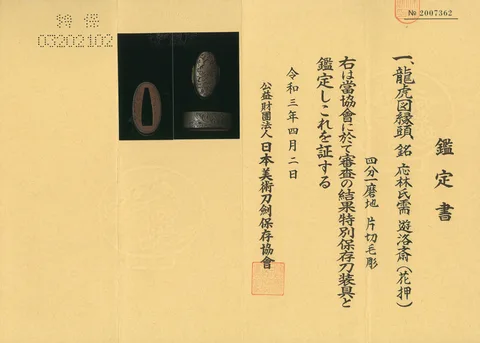 № 2007362
鑑定書
一、龍虎図縁頭 銘 応林氏需 遊洛斎(花押)
四分一磨地 片切毛彫
右は當協會に於て審査の結果特別保存刀装具と
鑑定しこれを証する
令和三年四月二日
公益財團法人日本美術刀劍保存協會
特保
03202102